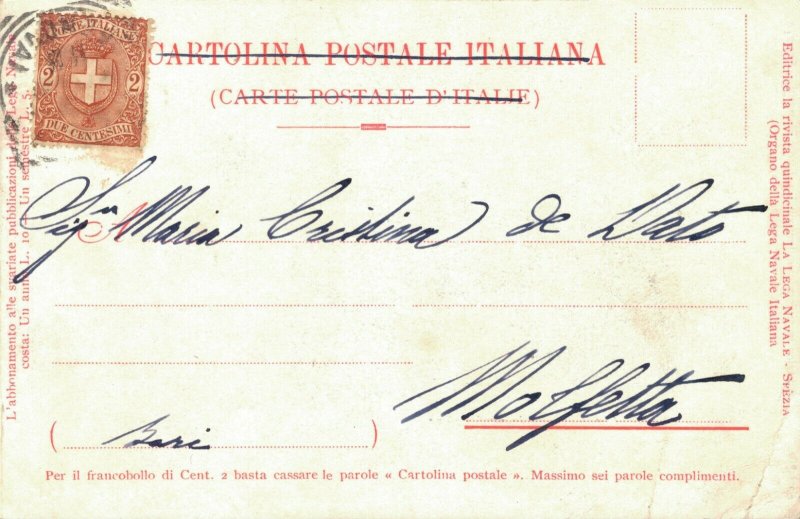 POSTE ITALIANE
2 2
DUE CENTESIMI
CARTOLINA POSTALE ITALIANA
(CARTE POSTALE D'ITALIE)
Sigra Maria Cristina de Dato
Molfetta
( Bari )
Per il francobollo di Cent. 2 basta cassare le parole « Cartolina postale ». Massimo sei parole complimenti.
L'abbonamento alle svariate pubblicazioni della Lega Navale
costa: Un anno L. 10 - Un semestre L. 5.
Editrice la rivista quindicinale LA LEGA NAVALE - SPÈZIA
(Organo della Lega Navale Italiana